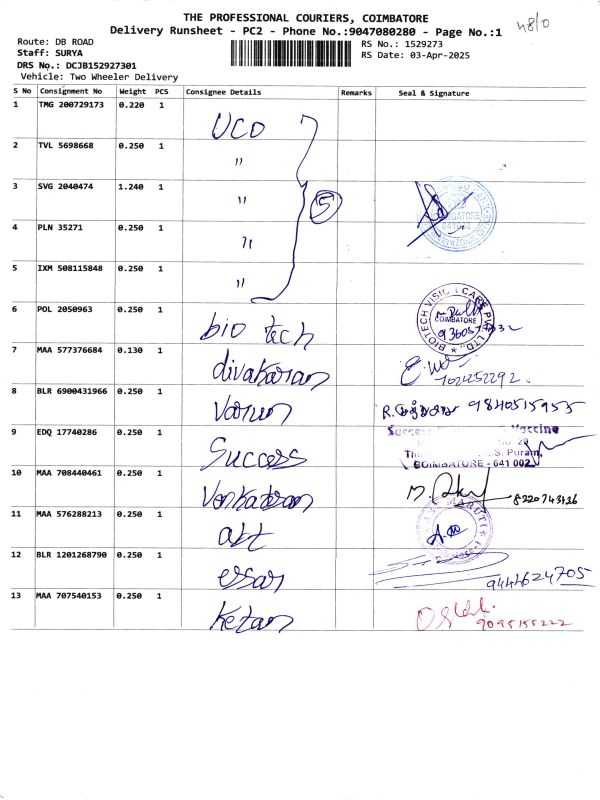 THE PROFESSIONAL COURIERS, COIMBATORE
48/0
Delivery Runsheet - PC2 - Phone No.:9047080280 - Page No.:1
Route: DB ROAD
RS No.: 1529273
Staff: SURYA
RS Date: 03-Apr-2025
DRS No.: DCJB152927301
Vehicle: Two Wheeler Delivery
S No Consignment No Weight PCS Consignee Details Remarks Seal & Signature
1 TMG 200729173 0.220 1 UCO
2 TVL 5698668 0.250 1 "
3 SVG 2040474 1.240 1 " 5
COIMBATORE
641002
4 PLN 35271 0.250 1 "
5 IXM 508115848 0.250 1 "
6 POL 2050963 0.250 1 bio tech
BIOTECH VISION CARE PVT LTD.,
COIMBATORE
7 MAA 577376684 0.130 1 divakaran
8 BLR 6900431966 0.250 1 Varun 9840515955
9 EDQ 17740286 0.250 1 Success
Success Vaccine
No. 20
S. Puram,
COIMBATORE - 641 002
10 MAA 708440461 0.250 1 Venkatraman 8220743426
11 MAA 576288213 0.250 1 art
MARUTI
12 BLR 1201268790 0.250 1 essar 9444624705
13 MAA 707540153 0.250 1 Ketan 9095155222